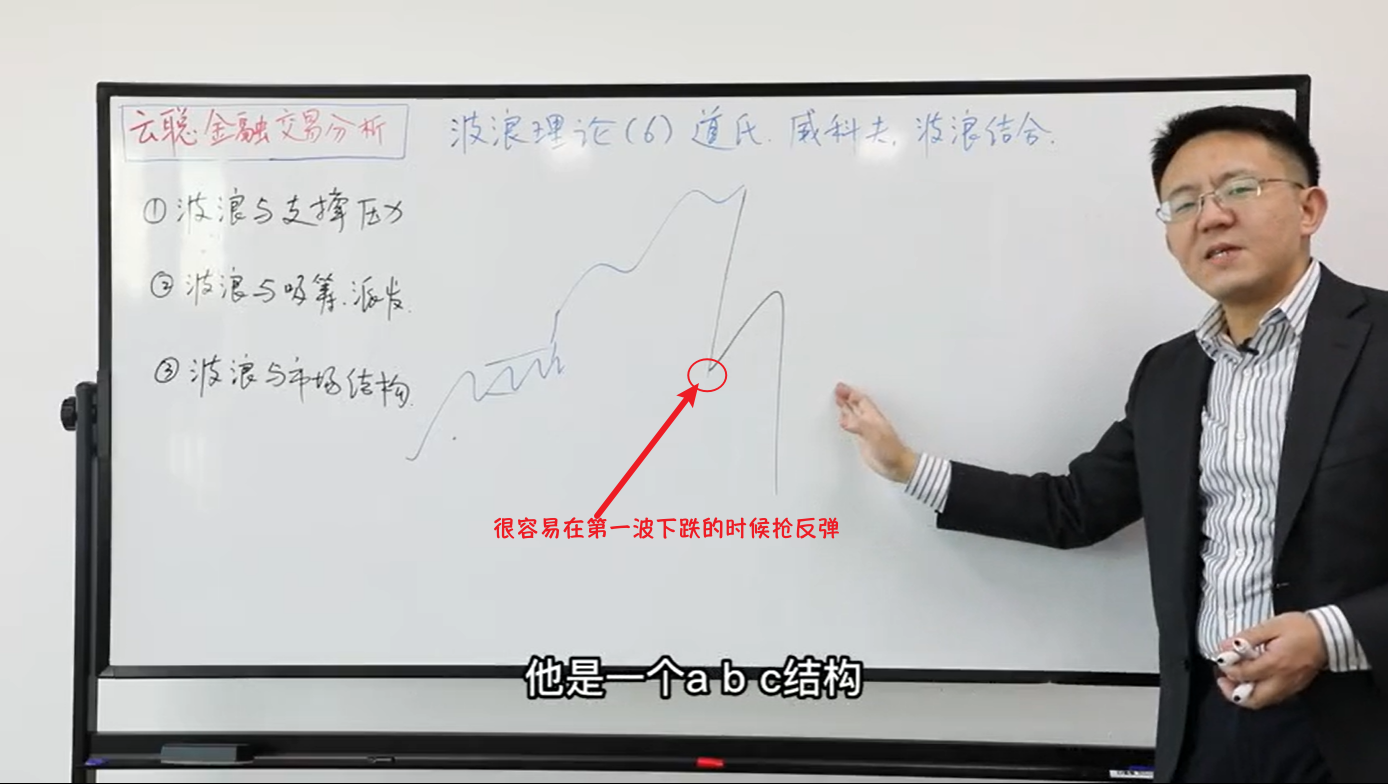 云聪金融交易分析
波浪理论(6)道氏.威科夫.波浪结合.
①波浪与支撑压力
②波浪与吸筹.派发.
③波浪与市场结构.
很容易在第一波下跌的时候抢反弹
他是一个a b c结构